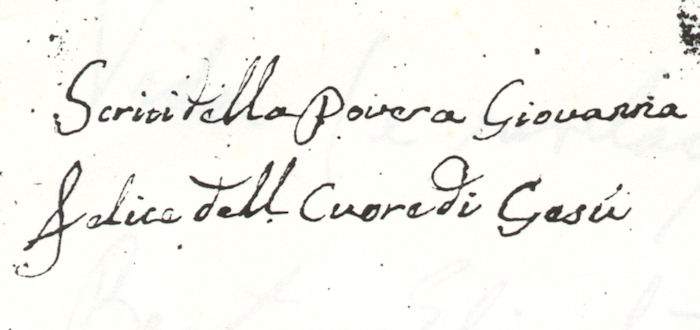 Scriti della Povera Giovanna
Felice dell Cuore di Gesú